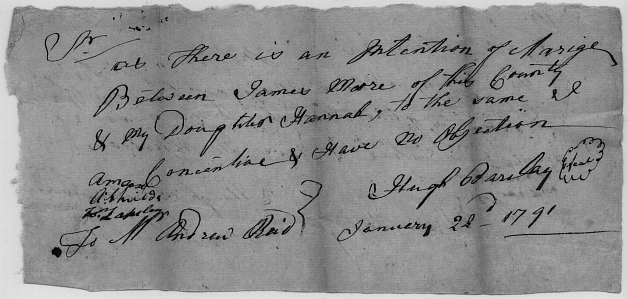 Sr
as there is an Intention of Marige
Between James Moore of this County
& my Doughter Hannah, to the same I
am Concentive & Have no Objection
Hugh Barclay Seal
To Mr Andrew Reid
January 22d 1791